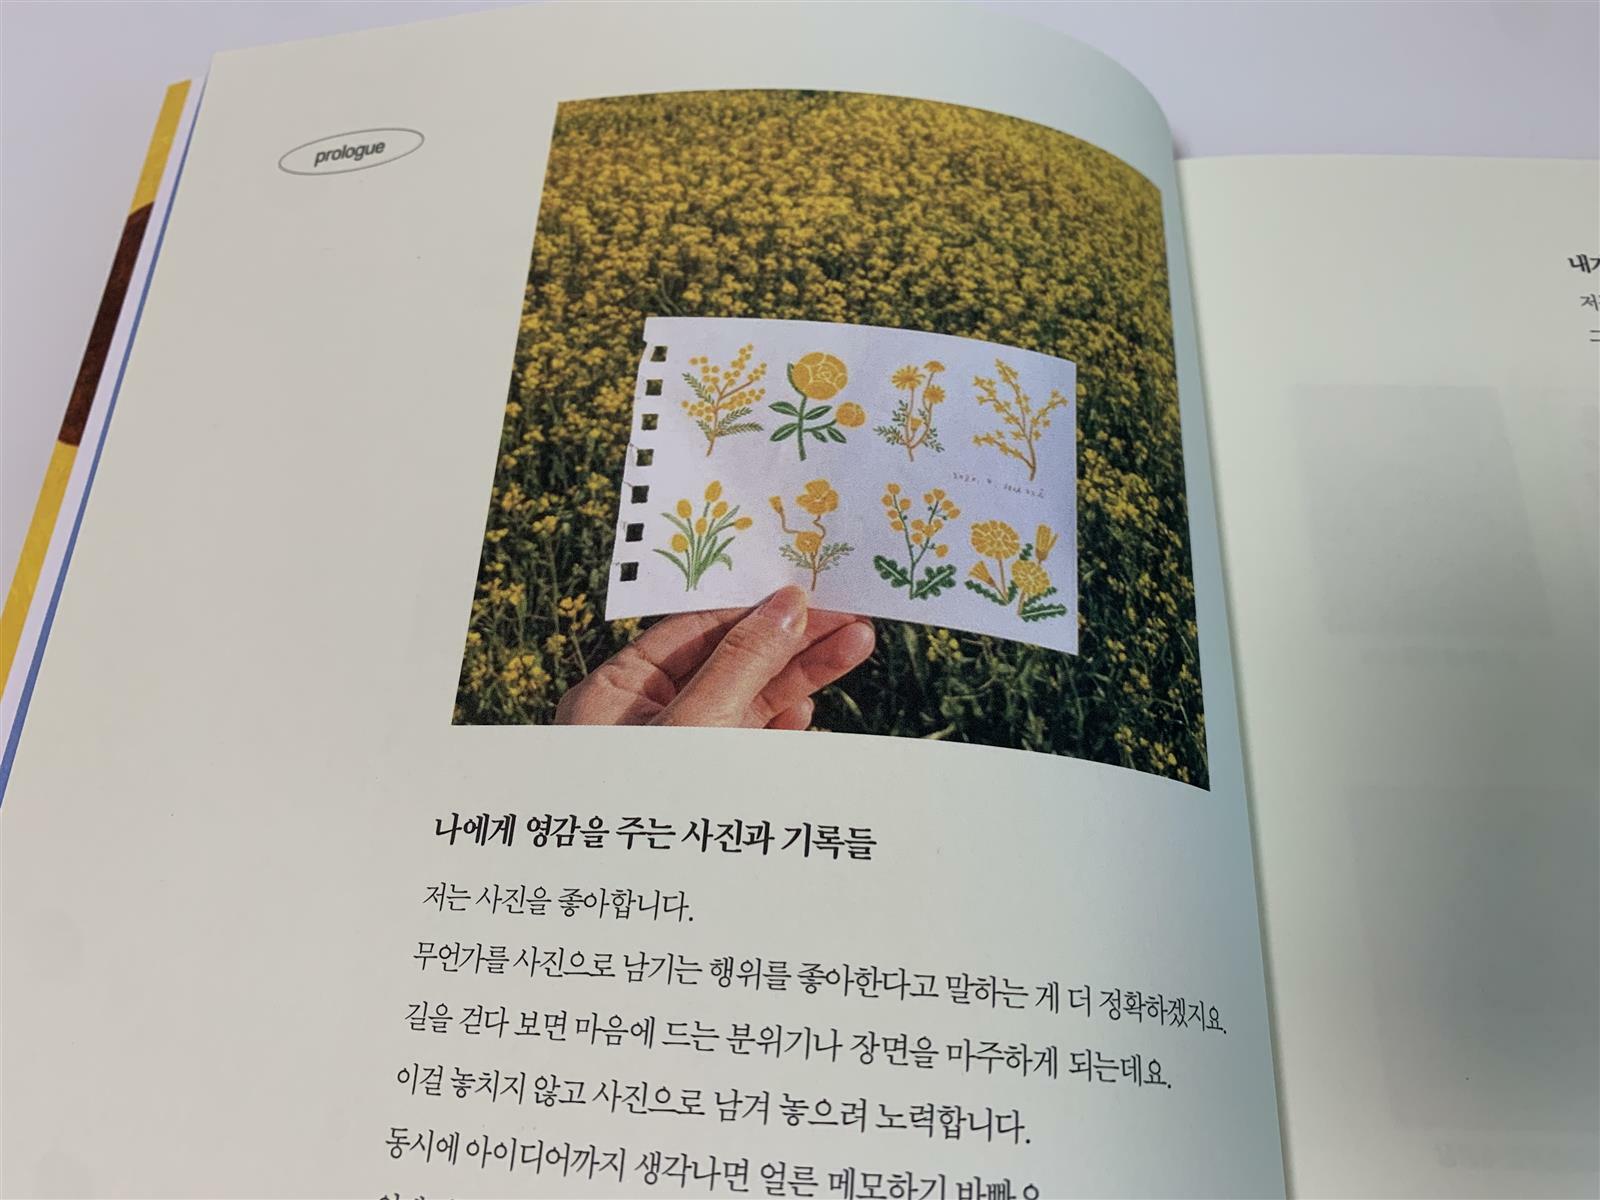 prologue
나에게 영감을 주는 사진과 기록들
저는 사진을 좋아합니다.
무언가를 사진으로 남기는 행위를 좋아한다고 말하는 게 더 정확하겠지요.
길을 걷다 보면 마음에 드는 분위기나 장면을 마주하게 되는데요.
이걸 놓치지 않고 사진으로 남겨 놓으려 노력합니다.
동시에 아이디어까지 생각나면 얼른 메모하기